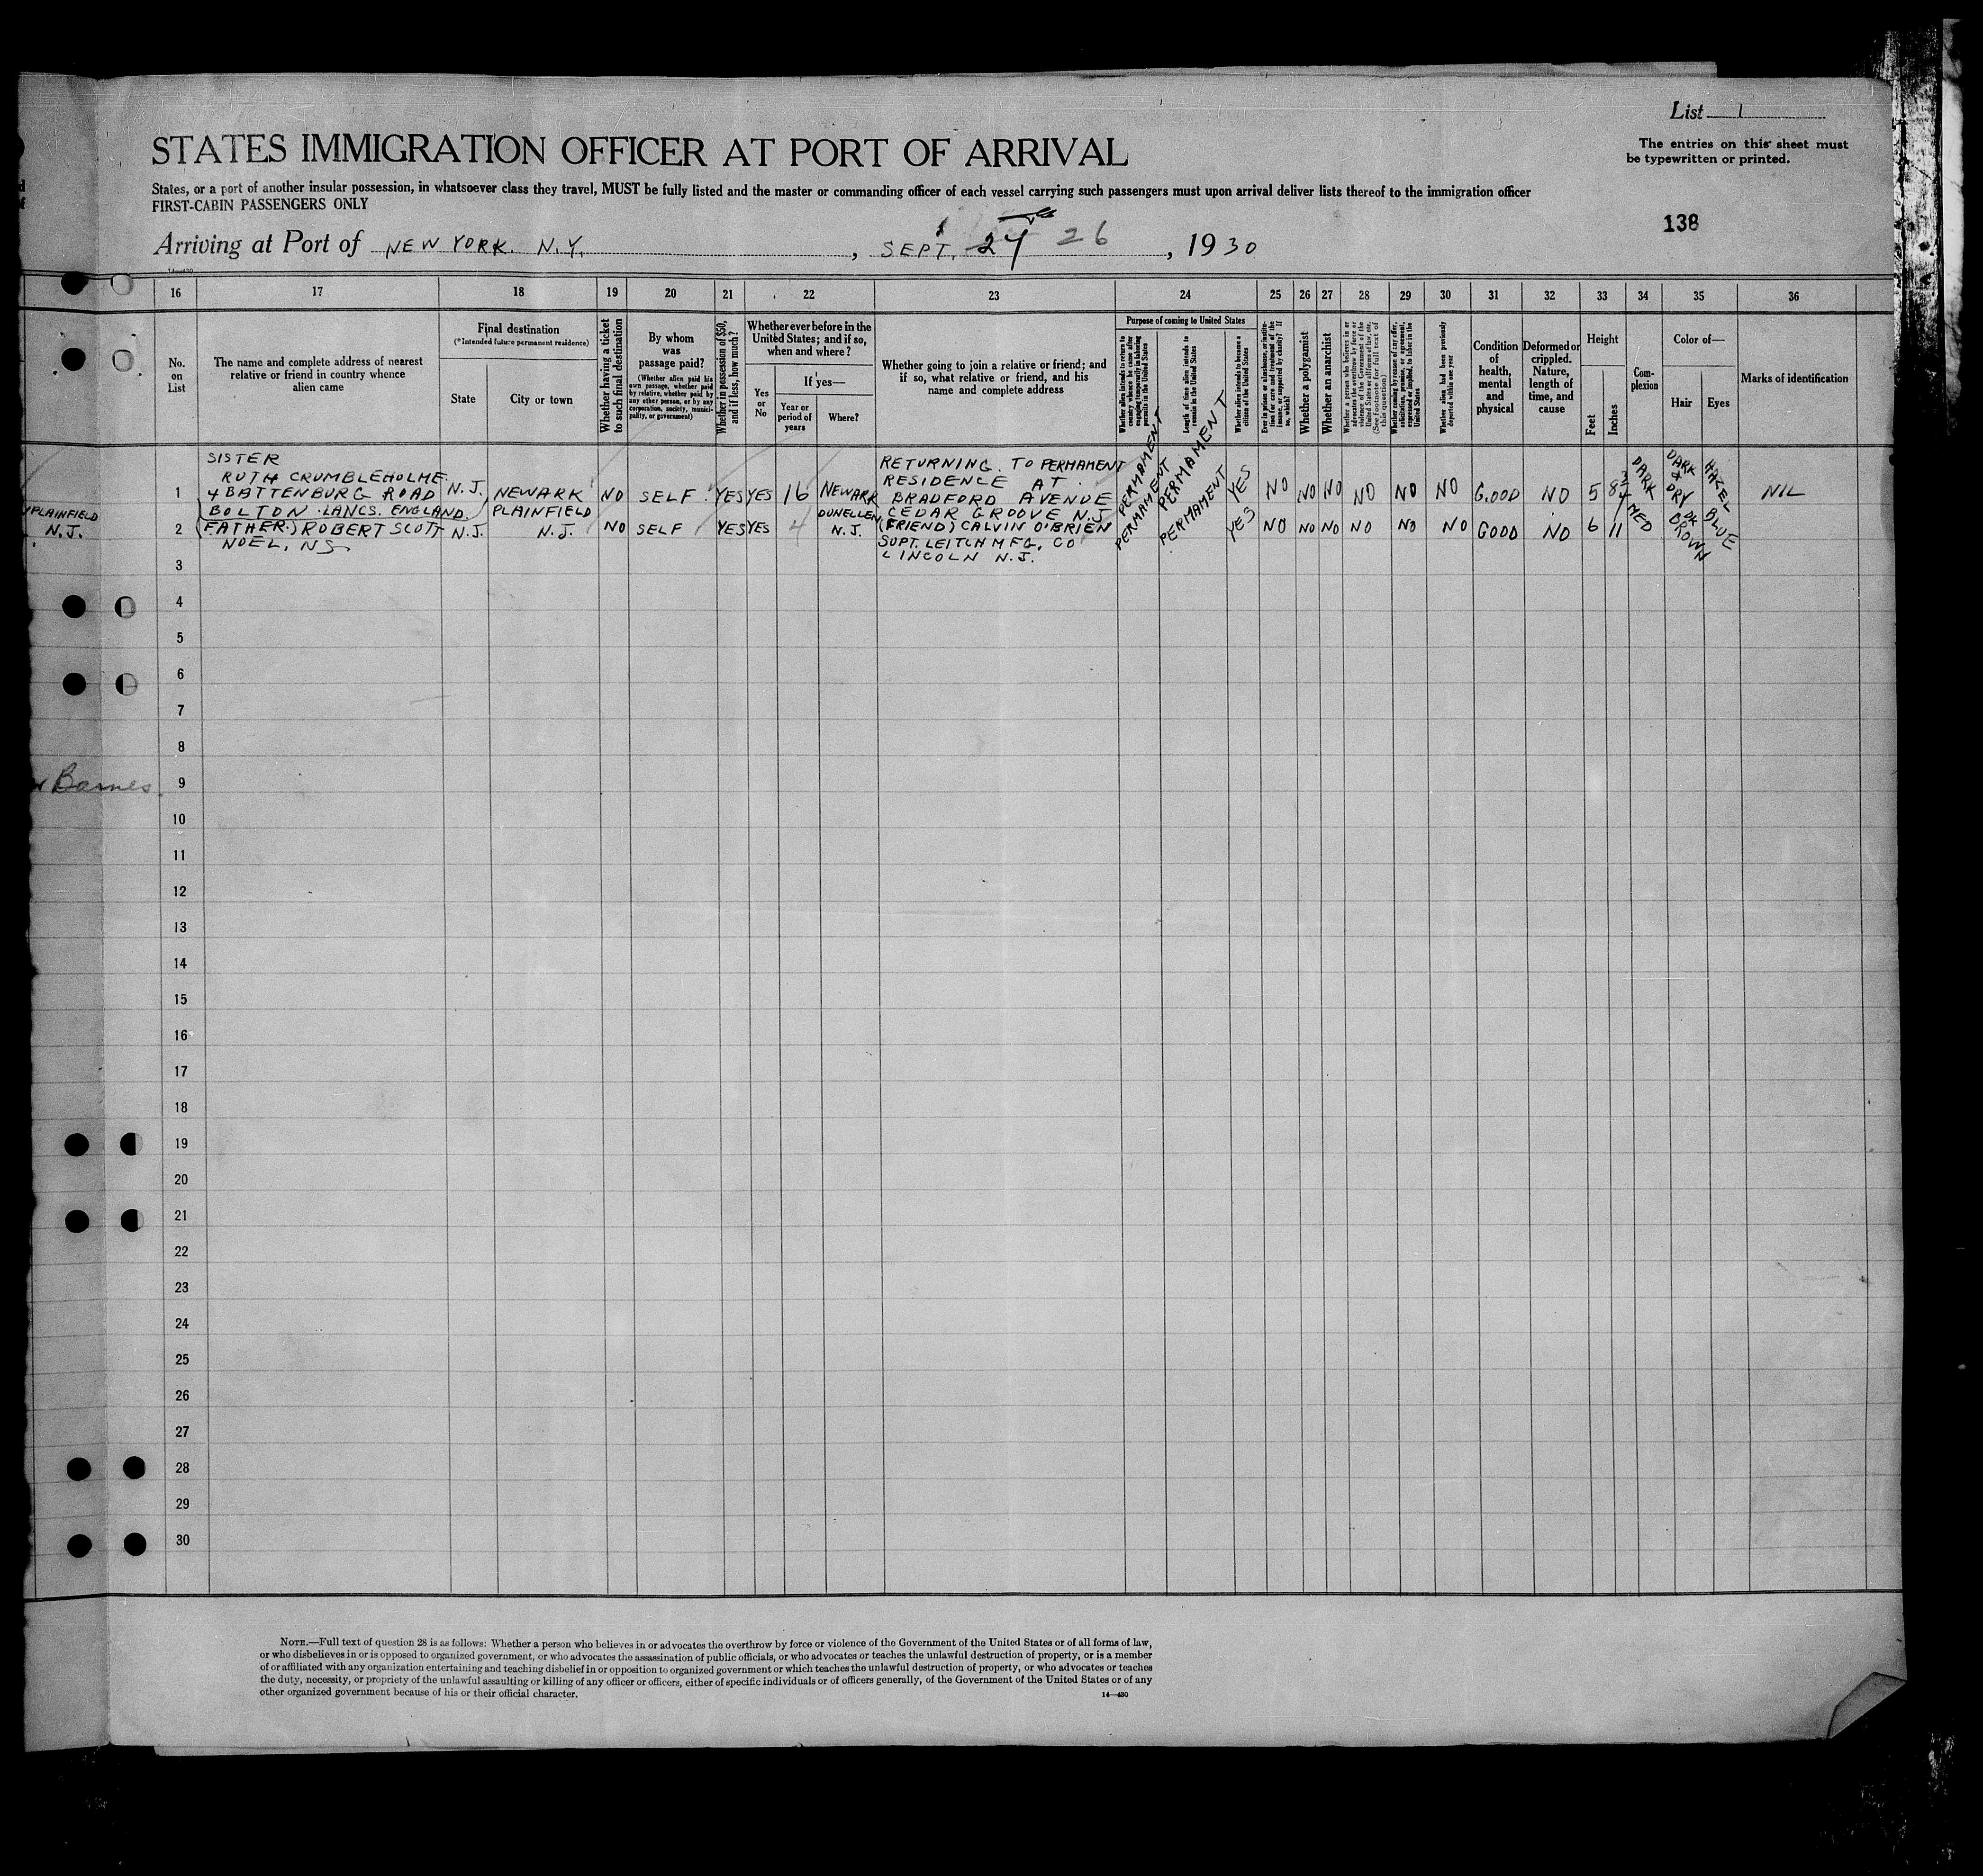 List 1
STATES IMMIGRATION OFFICER AT PORT OF ARRIVAL
The entries on this sheet must
be typewritten or printed.
States, or a port of another insular possession, in whatsoever class they travel, MUST be fully listed and the master or commanding officer of each vessel carrying such passengers must upon arrival deliver lists thereof to the immigration officer
FIRST-CABIN PASSENGERS ONLY
138
Arriving at Port of NEW YORK. N.Y. , SEPT. 24 26 , 1930
14—430
16 17 18 19 20 21 22 23 24 25 26 27 28 29 30 31 32 33 34 35 36
No.
on
List
The name and complete address of nearest
relative or friend in country whence
alien came
Final destination
(*Intended future permanent residence)
State
City or town
Whether having a ticket
to such final destination
By whom
was
passage paid?
(Whether alien paid his
own passage, whether paid
by relative, whether paid by
any other person, or by any
corporation, society, munici-
pality, or government)
Whether in possession of $50,
and if less, how much?
Whether ever before in the
United States; and if so,
when and where?
Yes
or
No
If yes—
Year or
period of
years
Where?
Whether going to join a relative or friend; and
if so, what relative or friend, and his
name and complete address
Purpose of coming to United States
Whether alien intends to return to
country whence he came after
engaging temporarily in laboring
pursuits in the United States
Length of time alien intends to
remain in the United States
Whether alien intends to become a
citizen of the United States
Ever in prison or almshouse, or institu-
tion for care and treatment of the
insane, or supported by charity? If
so, which?
Whether a polygamist
Whether an anarchist
Whether a person who believes in or
advocates the overthrow by force or
violence of the Government of the
United States or all forms of law, etc.
(See footnote for full text of
this question)
Whether coming by reason of any offer,
solicitation, promise, or agreement,
expressed or implied, to labor in the
United States
Whether alien had been previously
deported within one year
Condition
of
health,
mental
and
physical
Deformed or
crippled.
Nature,
length of
time, and
cause
Height
Feet
Inches
Com-
plexion
Color of—
Hair
Eyes
Marks of identification
1
SISTER
RUTH CRUMBLEHOLME
4 BATTENBURG ROAD
BOLTON LANCS. ENGLAND
N.J. NEWARK NO SELF YES YES 16 NEWARK
RETURNING TO PERMAMENT
RESIDENCE AT
BRADFORD AVENUE
CEDAR GROOVE N.J
PERMAMENT PERMAMENT YES NO NO NO NO NO NO GOOD NO 5 8 3/4 DARK DARK & DRY HAZEL NIL
PLAINFIELD
N.J.
2
(FATHER) ROBERT SCOTT
NOEL, NS
N.J. PLAINFIELD
N.J.
NO SELF YES YES 4 DUNELLEN
N.J.
(FRIEND) CALVIN O'BRIEN
SUPT. LEITCH MFG. CO
LINCOLN N.J.
PERMAMENT PERMAMENT YES NO NO NO NO NO NO GOOD NO 6 11 MED DK BROWN BLUE
3
4
5
6
7
8
Barnes
9
10
11
12
13
14
15
16
17
18
19
20
21
22
23
24
25
26
27
28
29
30
NOTE.—Full text of question 28 is as follows: Whether a person who believes in or advocates the overthrow by force or violence of the Government of the United States or of all forms of law,
or who disbelieves in or is opposed to organized government, or who advocates the assassination of public officials, or who advocates or teaches the unlawful destruction of property, or is a member
of or affiliated with any organization entertaining and teaching disbelief in or opposition to organized government or which teaches the unlawful destruction of property, or who advocates or teaches
the duty, necessity, or propriety of the unlawful assaulting or killing of any officer or officers, either of specific individuals or of officers generally, of the Government of the United States or of any
other organized government because of his or their official character.
14—430